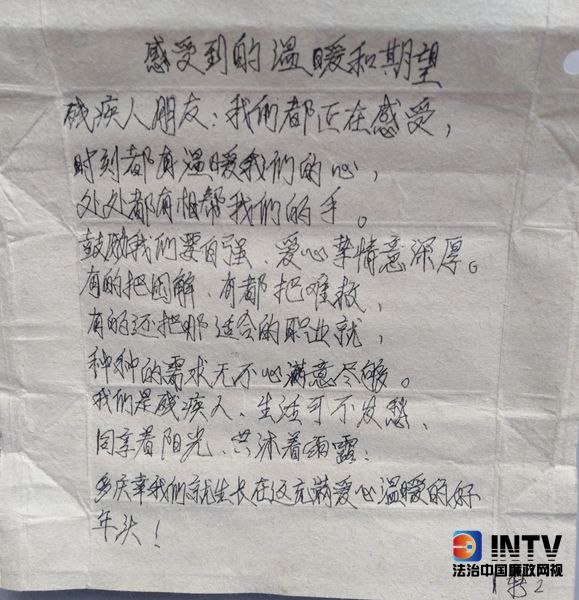 感受到的温暖和期望
残疾人朋友：我们都正在感受，
时刻都有温暖我们的心，
处处都有相帮我们的手。
鼓励我们要自强、爱心挚情意深厚。
有的把困解、有都把难救、
有的还把那适合的职业就，
种种的需求无不心满意尽够。
我们是残疾人、生活可不发愁、
同享着阳光、共沐着雨露；
多庆幸我们就生长在这充满爱心温暖的好
年头！
INTV
法治中国廉政网视
转2